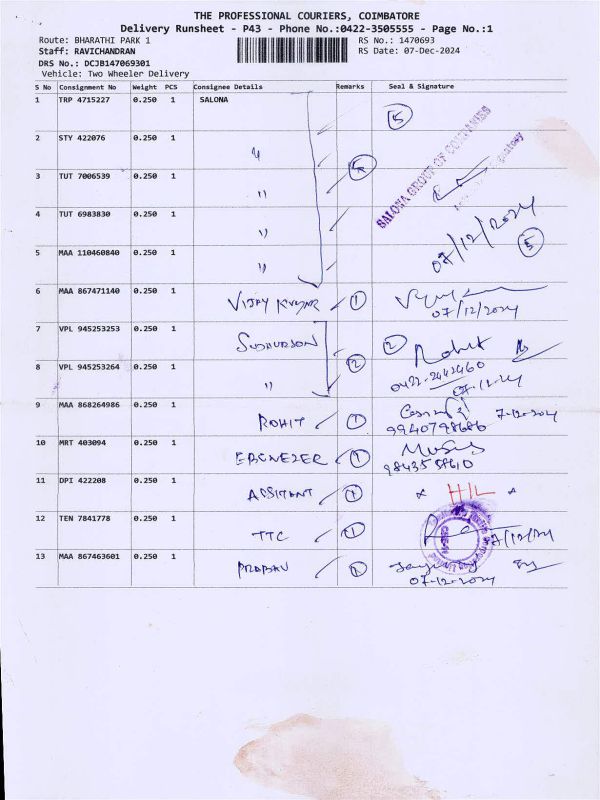 THE PROFESSIONAL COURIERS, COIMBATORE
Delivery Runsheet - P43 - Phone No.:0422-3505555 - Page No.:1
Route: BHARATHI PARK 1
RS No.: 1470693
Staff: RAVICHANDRAN
RS Date: 07-Dec-2024
DRS No.: DCJB147069301
Vehicle: Two Wheeler Delivery
S No Consignment No Weight PCS Consignee Details Remarks Seal & Signature
1 TRP 4715227 0.250 1 SALONA 5
2 STY 422076 0.250 1 "
SALONA GROUP OF COMPANIES
3 TUT 7006539 0.250 1 "
4 TUT 6983830 0.250 1 " 07/12/2024
5 MAA 110460840 0.250 1 " 5
6 MAA 867471140 0.250 1 VIJAY KUMAR 1
07/12/2024
7 VPL 945253253 0.250 1 SUDHURSON 2 2 Rohit
8 VPL 945253264 0.250 1 " 0422-2442460
07-12-24
9 MAA 868264986 0.250 1 ROHIT 1 7-12-2024
9940798686
10 MRT 403094 0.250 1 EBENEZER 1
11 DPI 422208 0.250 1 ASSITANT 1 x HIL x
12 TEN 7841778 0.250 1 TTC 1 7/12/24
13 MAA 867463601 0.250 1 PRABAV 1
07-12-2024